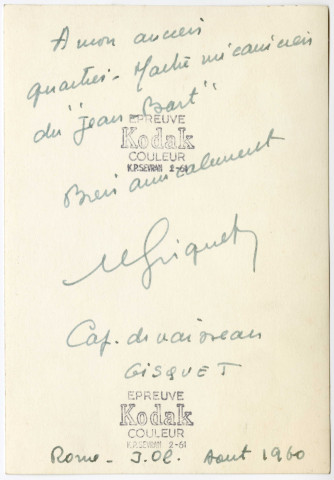 A mon ancien
quartier-Maitre mécanicien
du "Jean Bart"
EPREUVE
Kodak
COULEUR
K.P. SEVRAN 2-61
Bien amicalement
Cap. de vaisseau
GISQUET
EPREUVE
Kodak
COULEUR
K.P. SEVRAN 2-61
Rome - J.O. Aout 1960